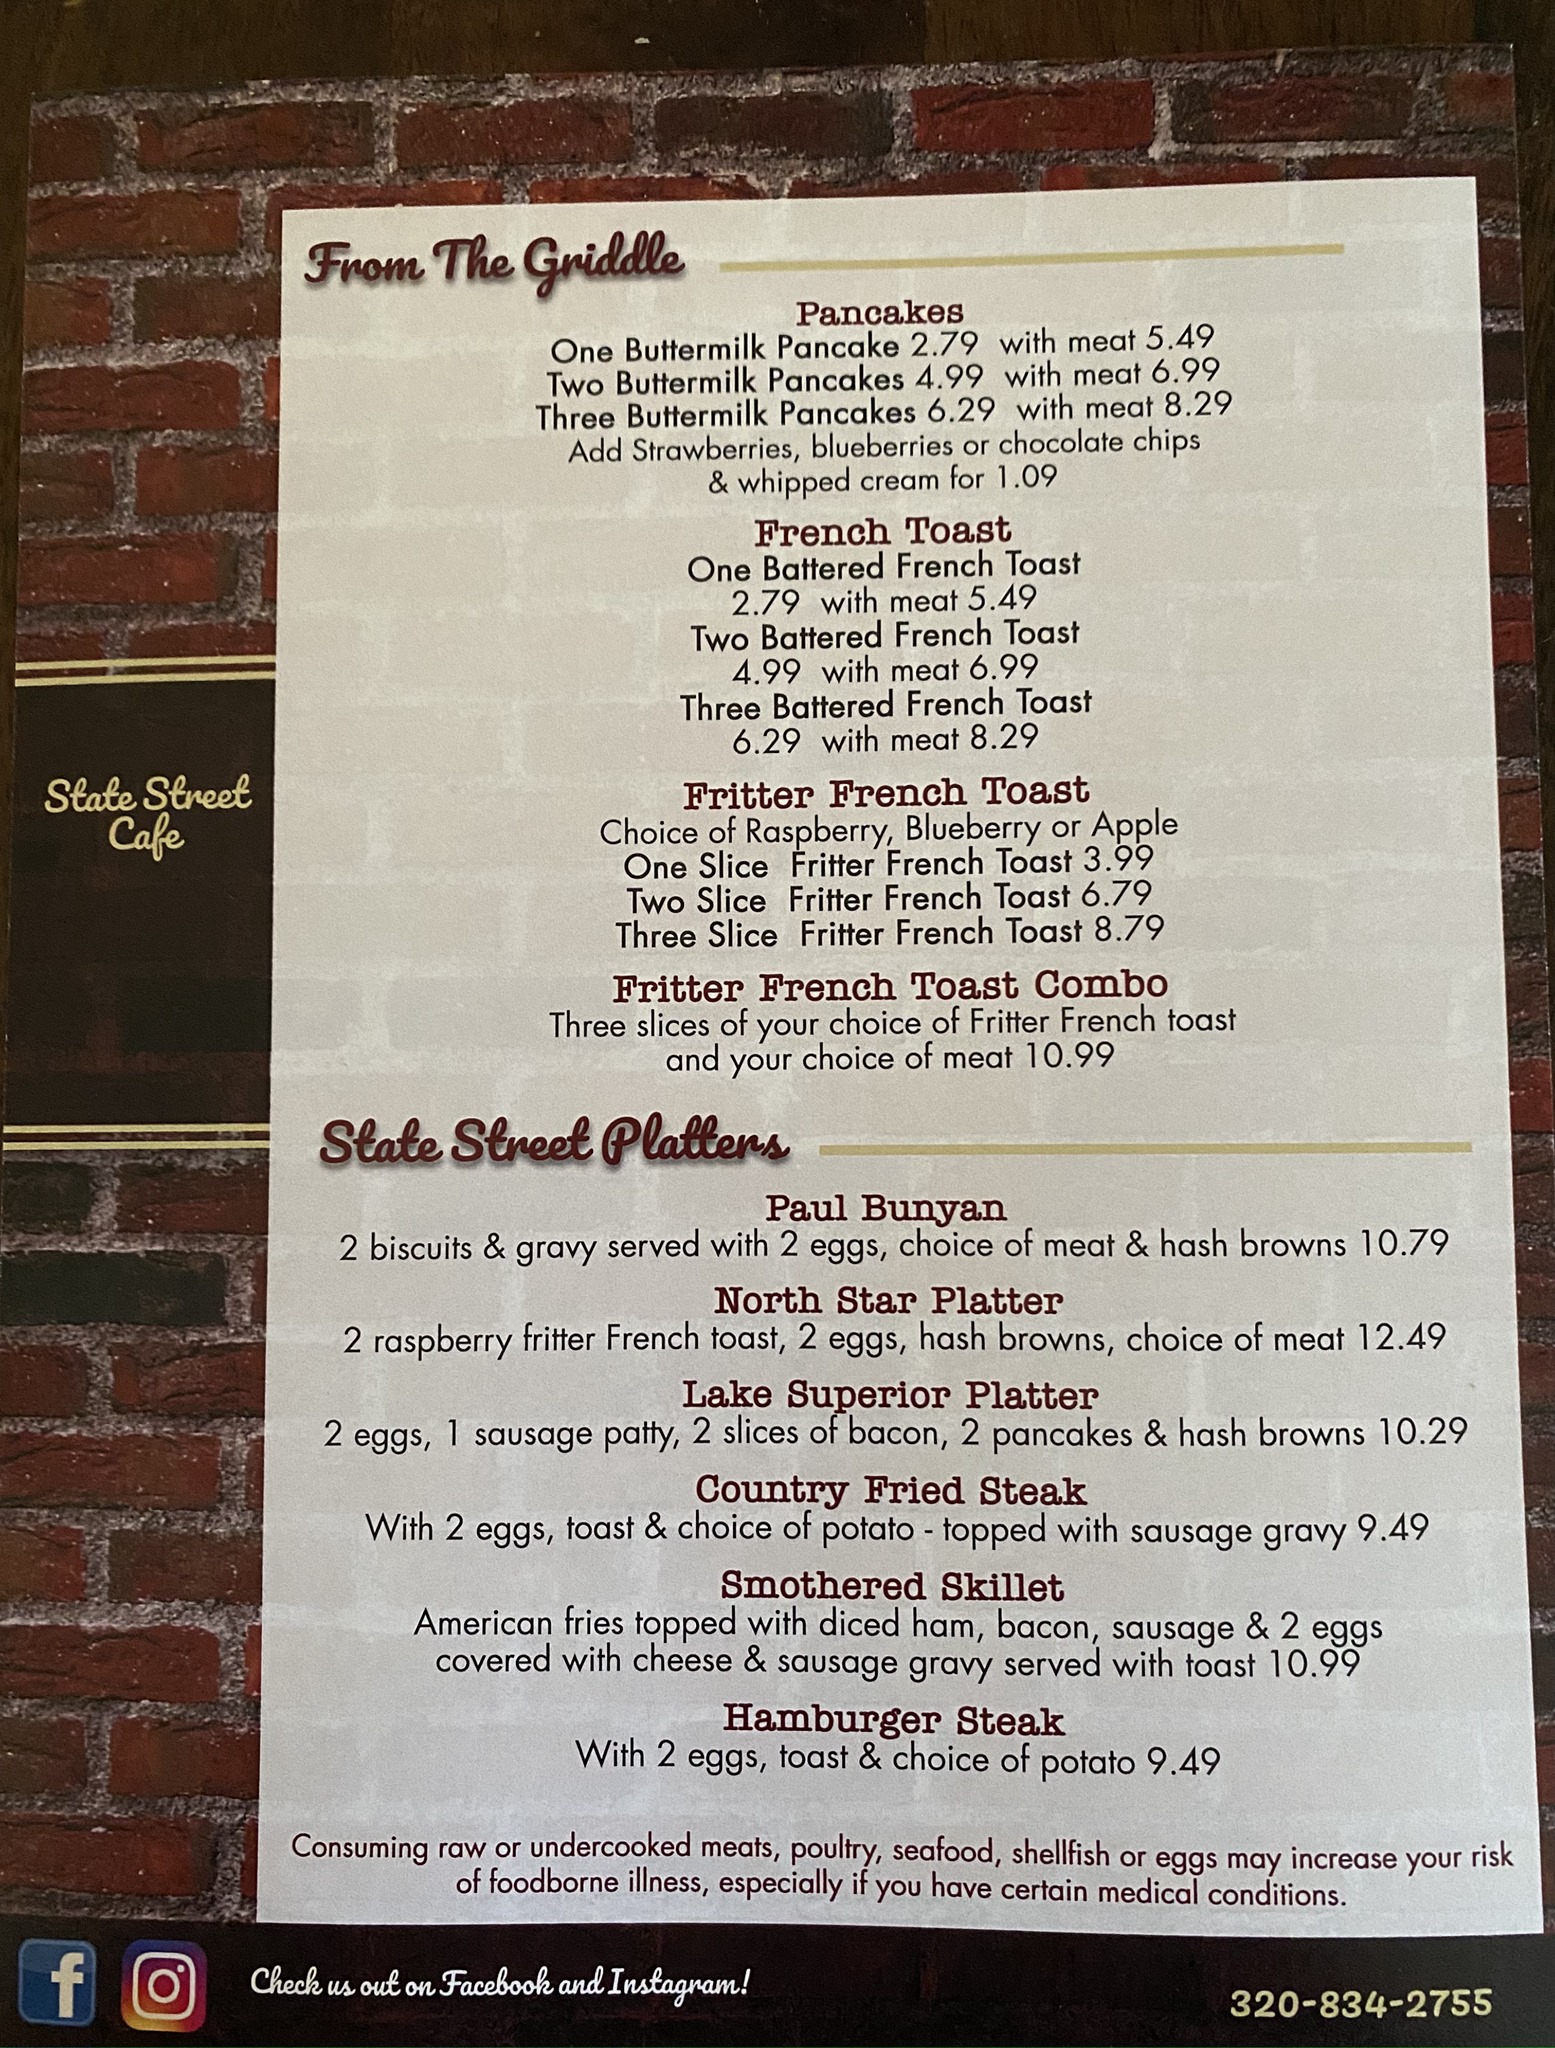 From The Griddle
Pancakes
One Buttermilk Pancake 2.79 with meat 5.49
Two Buttermilk Pancakes 4.99 with meat 6.99
Three Buttermilk Pancakes 6.29 with meat 8.29
Add Strawberries, blueberries or chocolate chips
& whipped cream for 1.09
French Toast
One Battered French Toast
2.79 with meat 5.49
Two Battered French Toast
4.99 with meat 6.99
Three Battered French Toast
6.29 with meat 8.29
Fritter French Toast
Choice of Raspberry, Blueberry or Apple
One Slice Fritter French Toast 3.99
Two Slice Fritter French Toast 6.79
Three Slice Fritter French Toast 8.79
Fritter French Toast Combo
Three slices of your choice of Fritter French toast
and your choice of meat 10.99
State Street
Cafe
State Street Platters
Paul Bunyan
2 biscuits & gravy served with 2 eggs, choice of meat & hash browns 10.79
North Star Platter
2 raspberry fritter French toast, 2 eggs, hash browns, choice of meat 12.49
Lake Superior Platter
2 eggs, 1 sausage patty, 2 slices of bacon, 2 pancakes & hash browns 10.29
Country Fried Steak
With 2 eggs, toast & choice of potato - topped with sausage gravy 9.49
Smothered Skillet
American fries topped with diced ham, bacon, sausage & 2 eggs
covered with cheese & sausage gravy served with toast 10.99
Hamburger Steak
With 2 eggs, toast & choice of potato 9.49
Consuming raw or undercooked meats, poultry, seafood, shellfish or eggs may increase your risk
of foodborne illness, especially if you have certain medical conditions.
f
Check us out on Facebook and Instagram!
320-834-2755